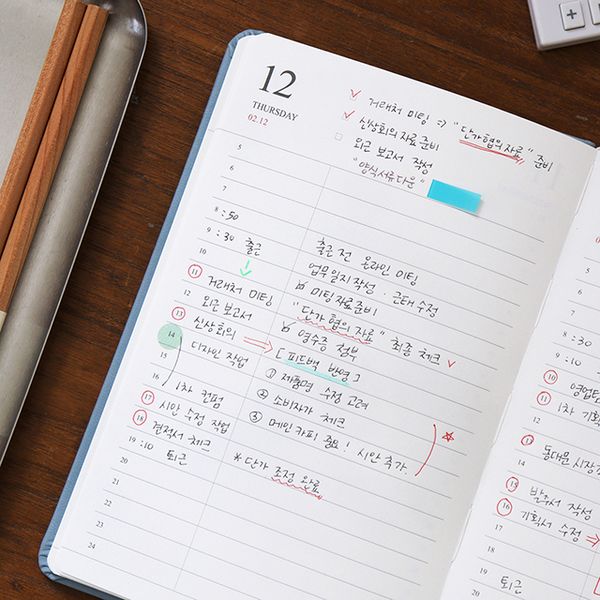 12
THURSDAY
02.12
✓ 거래처 미팅 => "단가 협의 자료" 준비
✓ 신상회의 자료 준비
□ 외근 보고서 작성
"양식서류 다운"
5
6
7
8:50
9:30 출근
출근 전 온라인 미팅
10
업무일지 작성 · 근태 수정
11 거래처 미팅
미팅자료준비
12 외근 보고서
"단가 협의 자료" 최종 체크 ✓
13 신상회의
영수증 첨부
14 디자인 작업
[ 피드백 반영 ]
15
① 제품명 수정 고려
16 1차 컨펌
② 소비자가 체크
17 시안 수정 작업
③ 메인 카피 중요! 시안 추가.
18 견적서 체크
19:10 퇴근
* 단가 조정 완료
20
21
22
23
24
5
6
7
8:30
9:10
10 영업
11 1차 기획
12
13 동대문 시장
14
15 발주서 작성
16 기획서 수정
17
18
19
20 퇴근